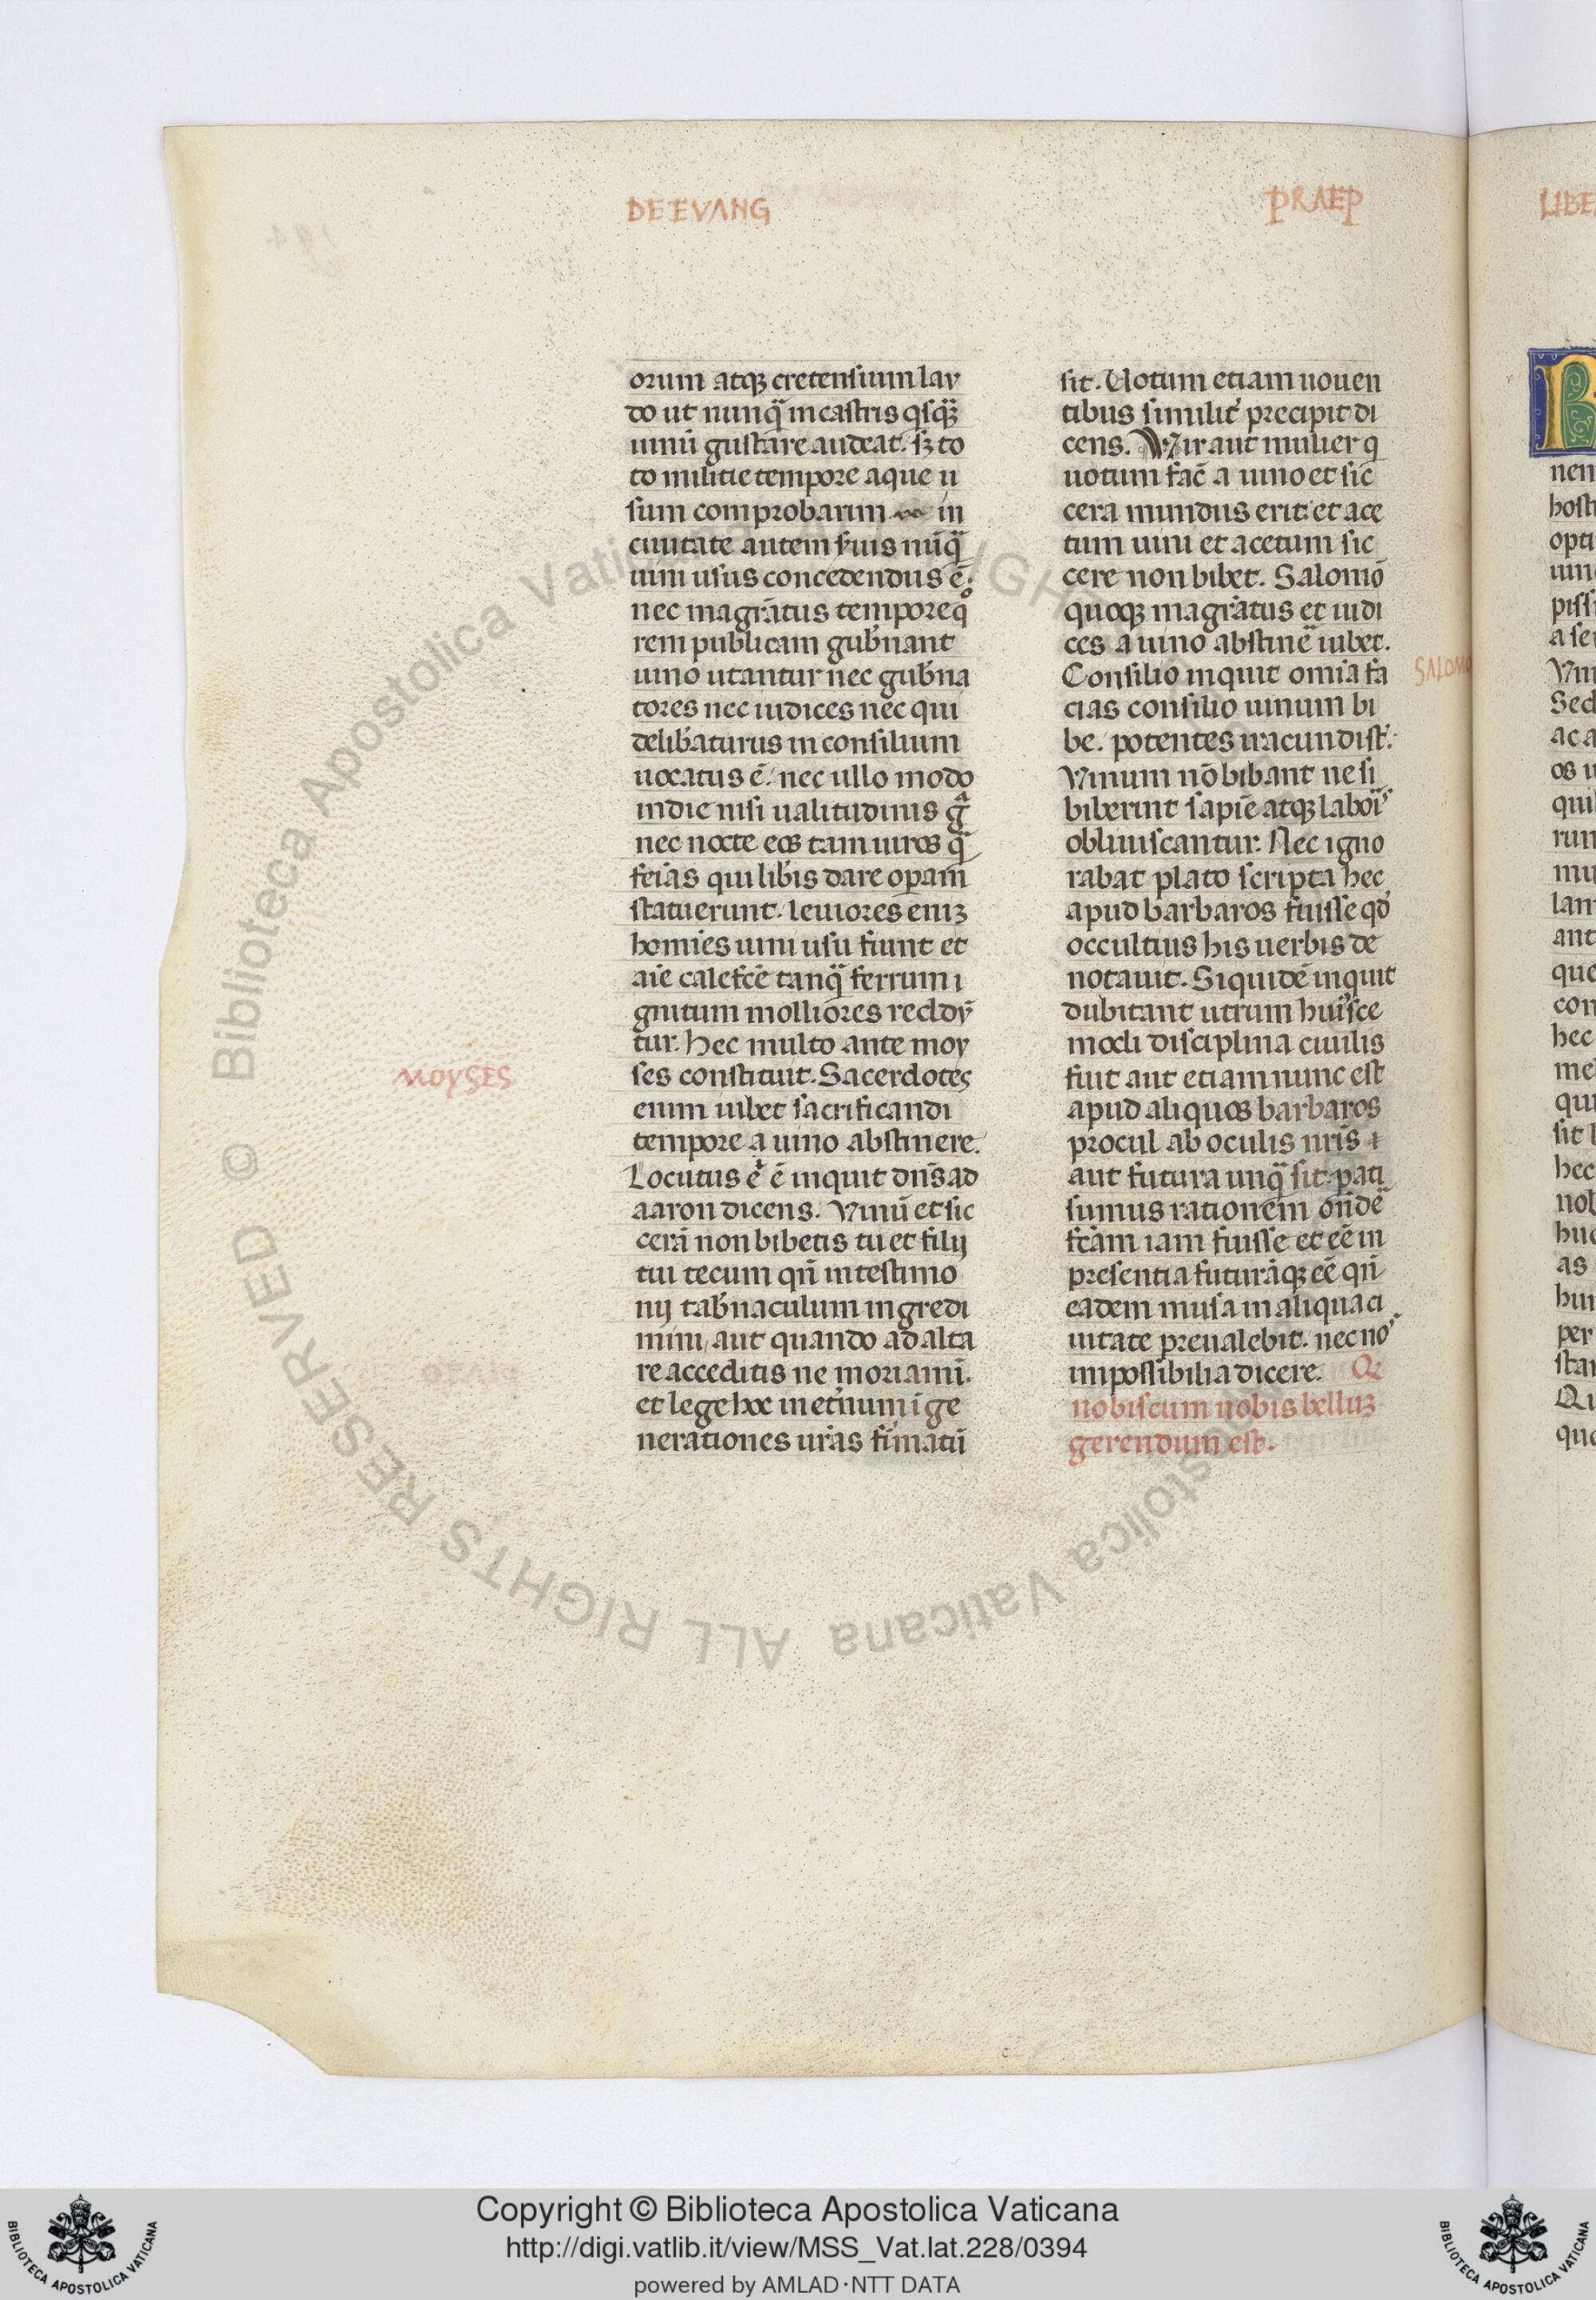 DE EVANG
PRAEP
orum atqꝫ cretensium lau
do ut nunq̈ in castris qsq̈
uinū gustare audeat. sꝫ to
to militie tempore aque u
sum comprobarim in
ciuitate autem seruis nūq̈
uini usus concedendus ē.
nec magr̄atus tempore qͦ
rem publicam gub̄nant
uino utantur nec gub̄na
tores nec iudices nec qui
delib̄aturus in consilium
uocatus ē. nec ullo modo
in die nisi ualitudinis gᷓ
nec nocte eos tam uiros q̈
feīas qui lib̄is dare operam
statuerunt. leuiores eniꝫ
homīes uini usu fiunt et
aīe calefc̄e tanq̈ ferrum i
gnitum molliores reddū
tur. hec multo ante moy
MOYSES
ses constituit. Sacerdotes
enim iubet sacrificandi
tempore a uino abstinere.
Locutus ē ē inquit dn̄s ad
aaron dicens. Vinū et sic
cerā non bibetis tu et filij
tui tecum qn̄ in testimo
nij tab̄naculum ingredi
mini, aut quando ad alta
re acceditis ne moriamī.
et lege hoc in et̄num ī ge
nerationes ur̄as firmatū
sit. Uotum etiam uouen
tibus similit᾽ precipit di
cens. Vir aut mulier q
uotum fac̄ a uino et sic
cera mundus erit et ace
tum uini et acetum sic
cere non bibet. Salomō
quoqꝫ magr̄atus et iudi
ces a uino abstinē iubet.
SALOMO
Consilio inquit omīa fa
cias consilio uinum bi
be. potentes iracundi st̄.
Vinum nō bibant ne si
biberint sapīe atqꝫ laboī
obliuiscantur. Nec igno
rabat plato scripta hec
apud barbaros fuisse qd̄
occultius his uerbis de
notauit. Siquidē inquit
dubitant utrum huīsce
modi disciplina ciuilis
fiut aut etiam nunc est
apud aliquos barbaros
procul ab oculis nr̄is
aut futura unq̈ sit. pati
sumus rationem on̄dē
fc̄am iam fuisse et eē in
presentia futurāqꝫ eē qn̄
eadem musa in aliqua ci
uitate preualebit. nec nō
impossibilia dicere. Qꝫ
nobiscum nobis belluꝫ
gerendum est.
Copyright © Biblioteca Apostolica Vaticana
http://digi.vatlib.it/view/MSS_Vat.lat.228/0394
powered by AMLAD·NTT DATA